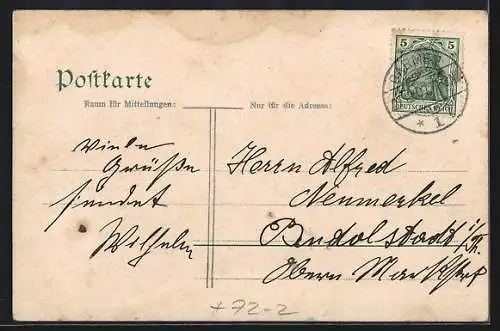 Postkarte
Raum für Mitteilungen:
Nur für die Adresse:
5 5
DEUTSCHES REICH
* 1
Viele
Grüße
sendet
Wilhelm
Herrn Alfred
Neumerkel
Rudolstadt i/Th.
Obern Marktstr
+72-2